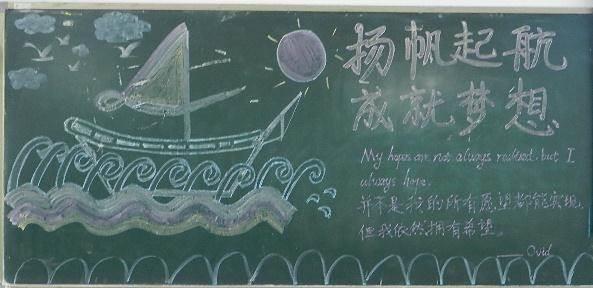 扬帆起航
成就梦想
My hopes are not always realized. but I
always hope.
并不是我的所有愿望都能实现,
但我依然拥有希望。
—— Ovid